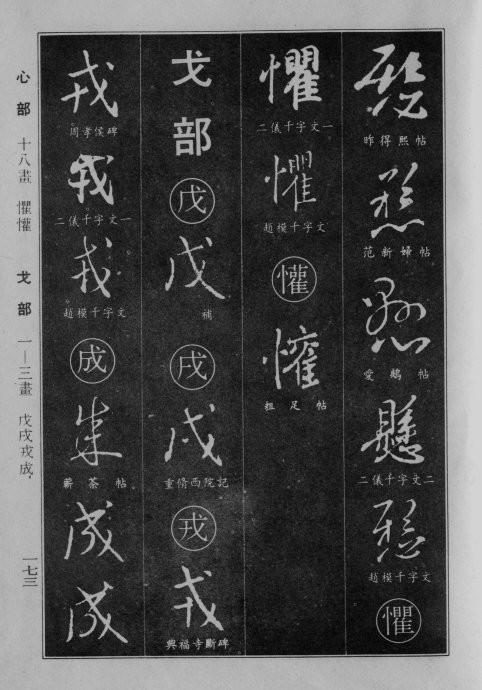 懸
昨得熙帖
懸
范新婦帖
懸
愛鵝帖
懸
二儀千字文二
懸
趙模千字文
懼
懼
二儀千字文一
懼
趙模千字文
懽
懽
粗足帖
戈部
戊
戊
補
戌
戌
重脩西院記
戎
戎
興福寺斷碑
戎
周孝侯碑
戎
二儀千字文一
戎
趙模千字文
成
成
蘄茶帖
成
成
心部 十八畫 懼懽 戈部 一—三畫 戊戌戎成
一七三